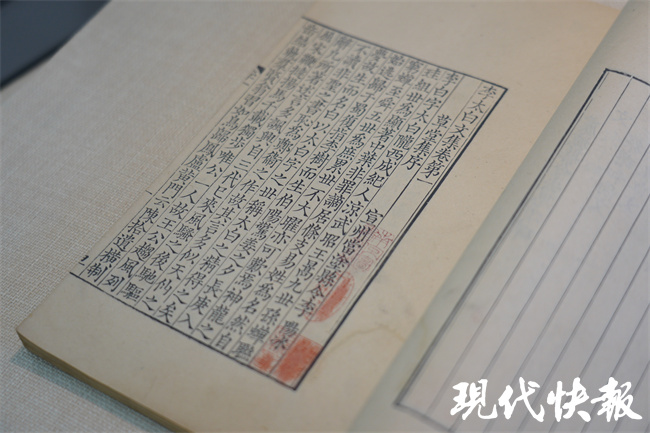 李太白文集卷第一
草堂集序
宣州當塗縣令李陽冰
李白字太白隴西成紀人涼武昭王暠九世孫蟬聯
珪組世為顯著中葉非罪謫居條支易姓為名然自
窮蟬至舜五世為庶累世不大曜亦可歎焉神龍之
始逃歸于蜀復指李樹而生伯陽驚姜之夕長庚入
夢故生而名白以太白字之世稱太白之精得之矣
不讀非聖之書恥為鄭衛之作故其言多似天仙之
辭凡所著述言多諷興自三代已來風騷之後馳驅
屈宋鞭撻揚馬千載獨步唯公一人故王公趨風列
岳結軌群賢翕習如鳥歸鳳盧黃門云陳拾遺橫制
現代快報